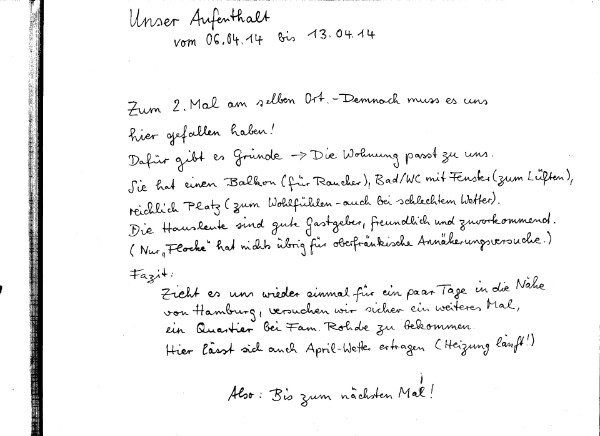 Unser Aufenthalt
vom 06.04.14 bis 13.04.14
Zum 2. Mal am selben Ort. - Demnach muss es uns
hier gefallen haben!
Dafür gibt es Gründe → Die Wohnung passt zu uns.
Sie hat einen Balkon (für Raucher), Bad/WC mit Fenster (zum Lüften),
reichlich Platz (zum Wohlfühlen - auch bei schlechtem Wetter).
Die Hausleute sind gute Gastgeber, freundlich und zuvorkommend.
(Nur „Flocke" hat nichts übrig für oberfränkische Annäherungsversuche.)
Fazit:
Zieht es uns wieder einmal für ein paar Tage in die Nähe
von Hamburg, versuchen wir sicher ein weiteres Mal,
ein Quartier bei Fam. Rohde zu bekommen.
Hier lässt sich auch April-Wetter ertragen (Heizung läuft!)
Also: Bis zum nächsten Mal!